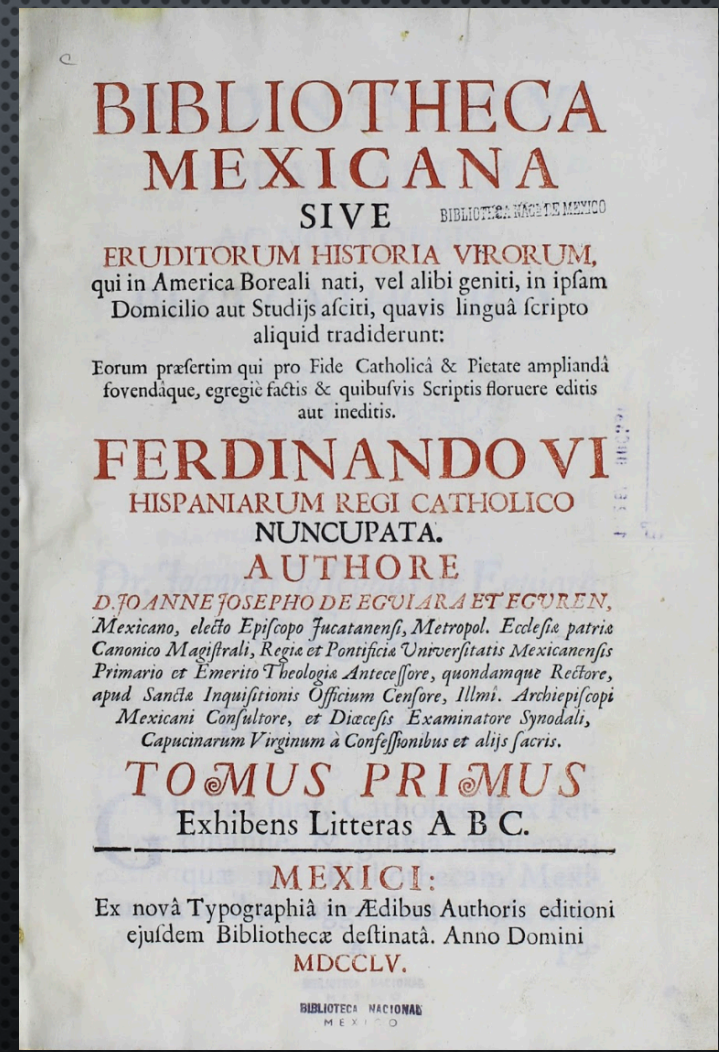 BIBLIOTHECA
MEXICANA
SIVE
BIBLIOTECA NAC. DE MEXICO
ERUDITORUM HISTORIA VIRORUM,
qui in America Boreali nati, vel alibi geniti, in ipſam
Domicilio aut Studijs aſciti, quavis linguâ ſcripto
aliquid tradiderunt:
Eorum præſertim qui pro Fide Catholicâ & Pietate ampliandâ
fovendâque, egregiè factis & quibuſvis Scriptis floruere editis
aut ineditis.
FERDINANDO VI
HISPANIARUM REGI CATHOLICO
NUNCUPATA.
AUTHORE
D. JOANNE JOSEPHO DE EGUIARA ET EGUREN,
Mexicano, electo Epiſcopo Jucatanenſi, Metropol. Eccleſiæ patriæ
Canonico Magiſtrali, Regiæ et Pontificiæ Univerſitatis Mexicanenſis
Primario et Emerito Theologiæ Anteceſſore, quondamque Rectore,
apud Sanctæ Inquiſitionis Officium Cenſore, Illmi. Archiepiſcopi
Mexicani Conſultore, et Diœceſis Examinatore Synodali,
Capucinarum Virginum à Confeſſionibus et alijs ſacris.
TOMUS PRIMUS
Exhibens Litteras A B C.
MEXICI:
Ex novâ Typographiâ in Ædibus Authoris editioni
ejuſdem Bibliothecæ deſtinatâ. Anno Domini
MDCCLV.
BIBLIOTECA NACIONAL
MEXICO